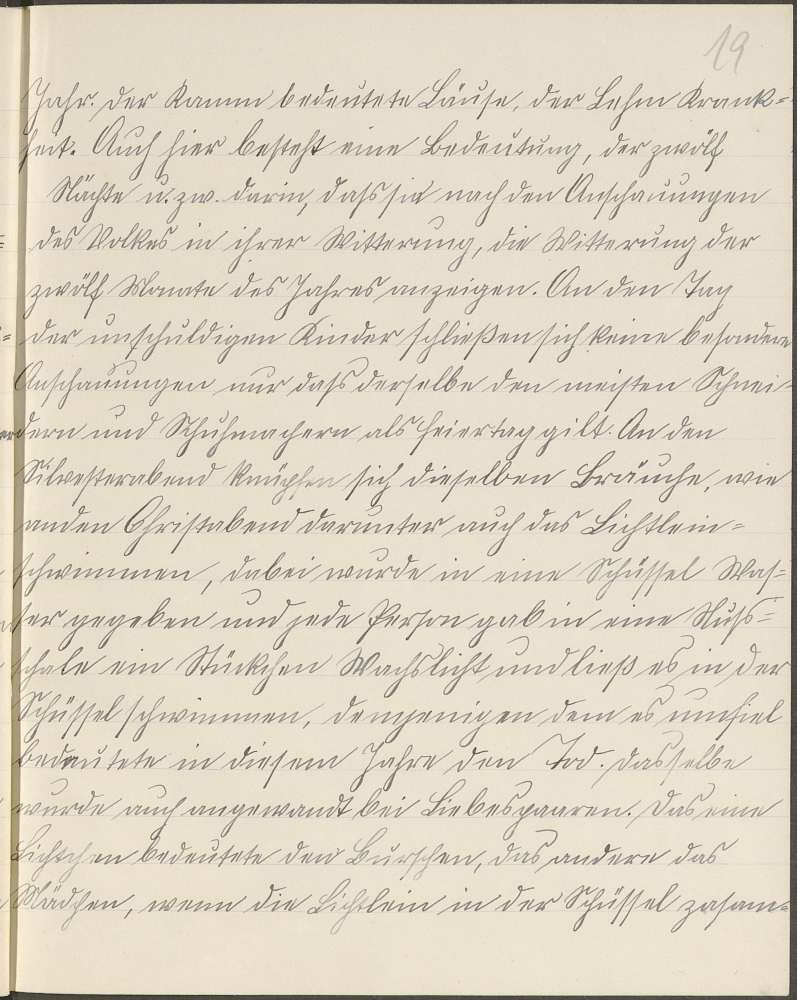 19
Jahr. Der Kamm bedeutete Läuse, der Lehm Krank=
heit. Auch hier besteht eine Bedeutung, der zwölf
Nächte u. zw. darin, dass sie nach den Anschauungen
des Volkes in ihrer Witterung, die Witterung der
zwölf Monate des Jahres anzeigen. An den Tag
der unschuldigen Kinder schließen sich keine besondere
Anschauungen nur dass derselbe den meisten Schnei-
dern und Schuhmachern als Feiertag gilt. An den
Silvesterabend knüpfen sich dieselben Bräuche, wie
an den Christabend darunter auch das Lichtlein=
schwimmen, dabei wurde in eine Schüssel Was=
ser gegeben und jede Person gab in eine Nuss=
schale ein Stückchen Wachslicht und ließ es in der
Schüssel schwimmen, demjenigen dem es umfiel
bedeutete in diesem Jahre den Tod. Dasselbe
wurde auch angewandt bei Liebespaaren. Das eine
Lichtchen bedeutete den Burschen, das andere das
Mädchen, wenn die Lichtlein in der Schüssel zusam=